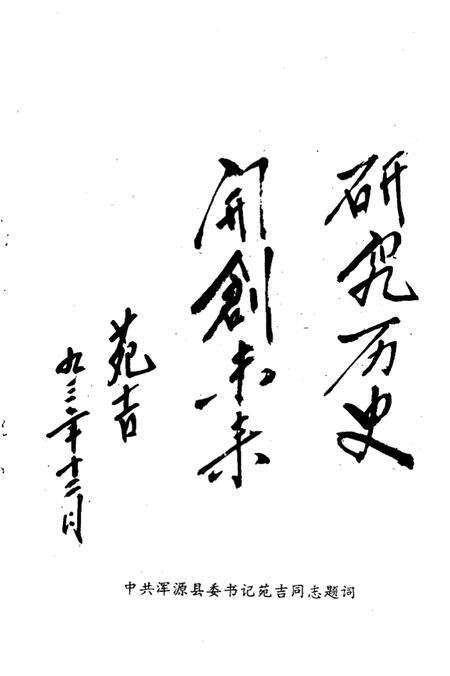 研究历史
開創未来
苑吉
九三年十二月
中共浑源县委书记苑吉同志题词